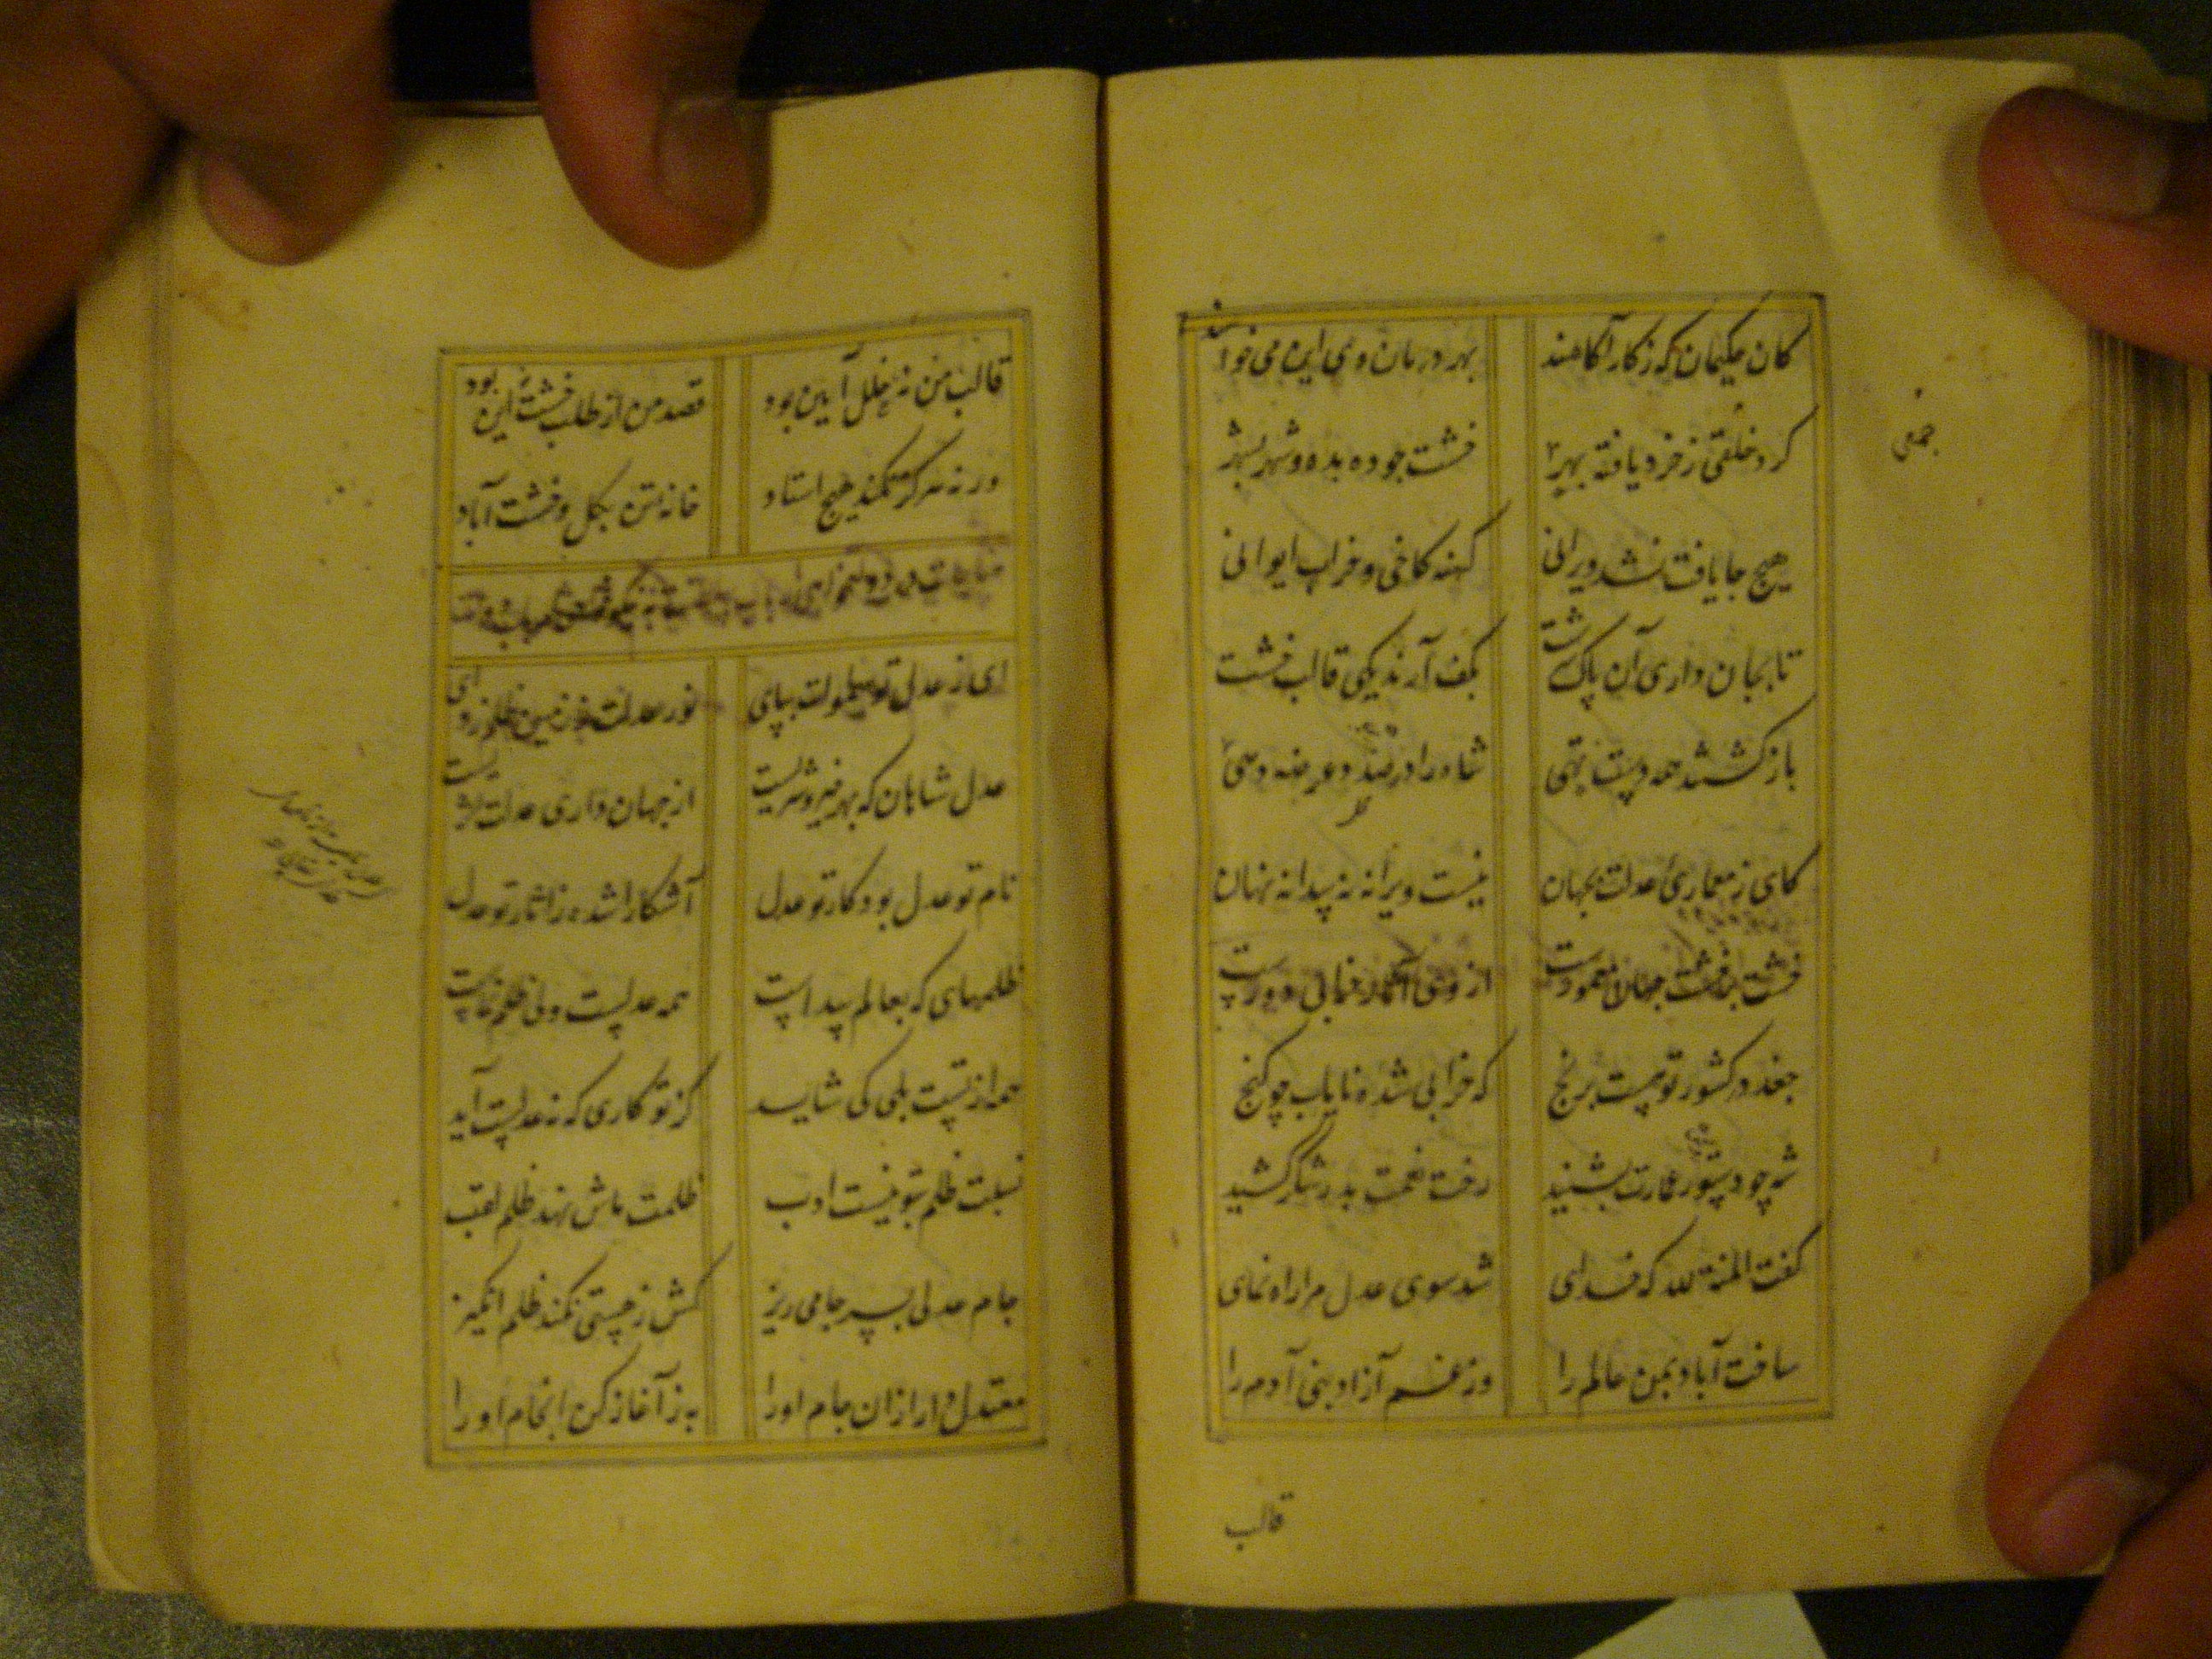 کان حکیمان که ز کار آگاهند بهر درمان وی این می خواهند
جمعی
کرد خلقی ز خرد یافته بهر خشت جو ده بده و شهر بشهر
هیچ جا یافت نشد ویرانی کهنه کاخی و خراب ایوانی
تا بجان داری آن پاک سرشت بکف آرند یکی قالب خشت
باز گشتند همه دست تهی شاه را در صدد عرضه دهی
کای ز معماری عدلت بجهان نیست ویرانه نه پیدا نه نهان
خشت بر خشت جهان معمورست
جغد در کشور تو هست برنج که خرابی شده نایاب چو گنج
شه چو دستور عمارت بشنید رخت نعمت بدر شکر کشید
گفت المنة لله که خدای شد سوی عدل مرا راه نمای
ساخت آباد بمن عالم را وز غم آزاد بنی آدم را
قالب
قالب من نه خلل آیین بود قصد من از طلب خشت این بود
ور نه هرگز نکند هیچ استاد خانه تن بگل و خشت آباد
مناجات در
ای ز عدل تو بپای نور عدلت ز زمین ظلم زدای
عدل شاهان که بهر خیر و شریست از جهان داری عدلت اثریست
نام تو عدل بود کار تو عدل آشکارا شده ز آثار تو عدل
ظلمهای که بعالم پیداست همه عدلست ولی ظلم نماست
همه از تست بلی کی شاید کز تو کاری که نه عدلست آید
نسبت ظلم بتو نیست ادب ظلمت ماش نهد ظلم لقب
جام عدلی بسر جامی ریز کش ز چستی نکند ظلم انگیز
معتدل دار ازان جام او را به ز آغاز کن انجام او را